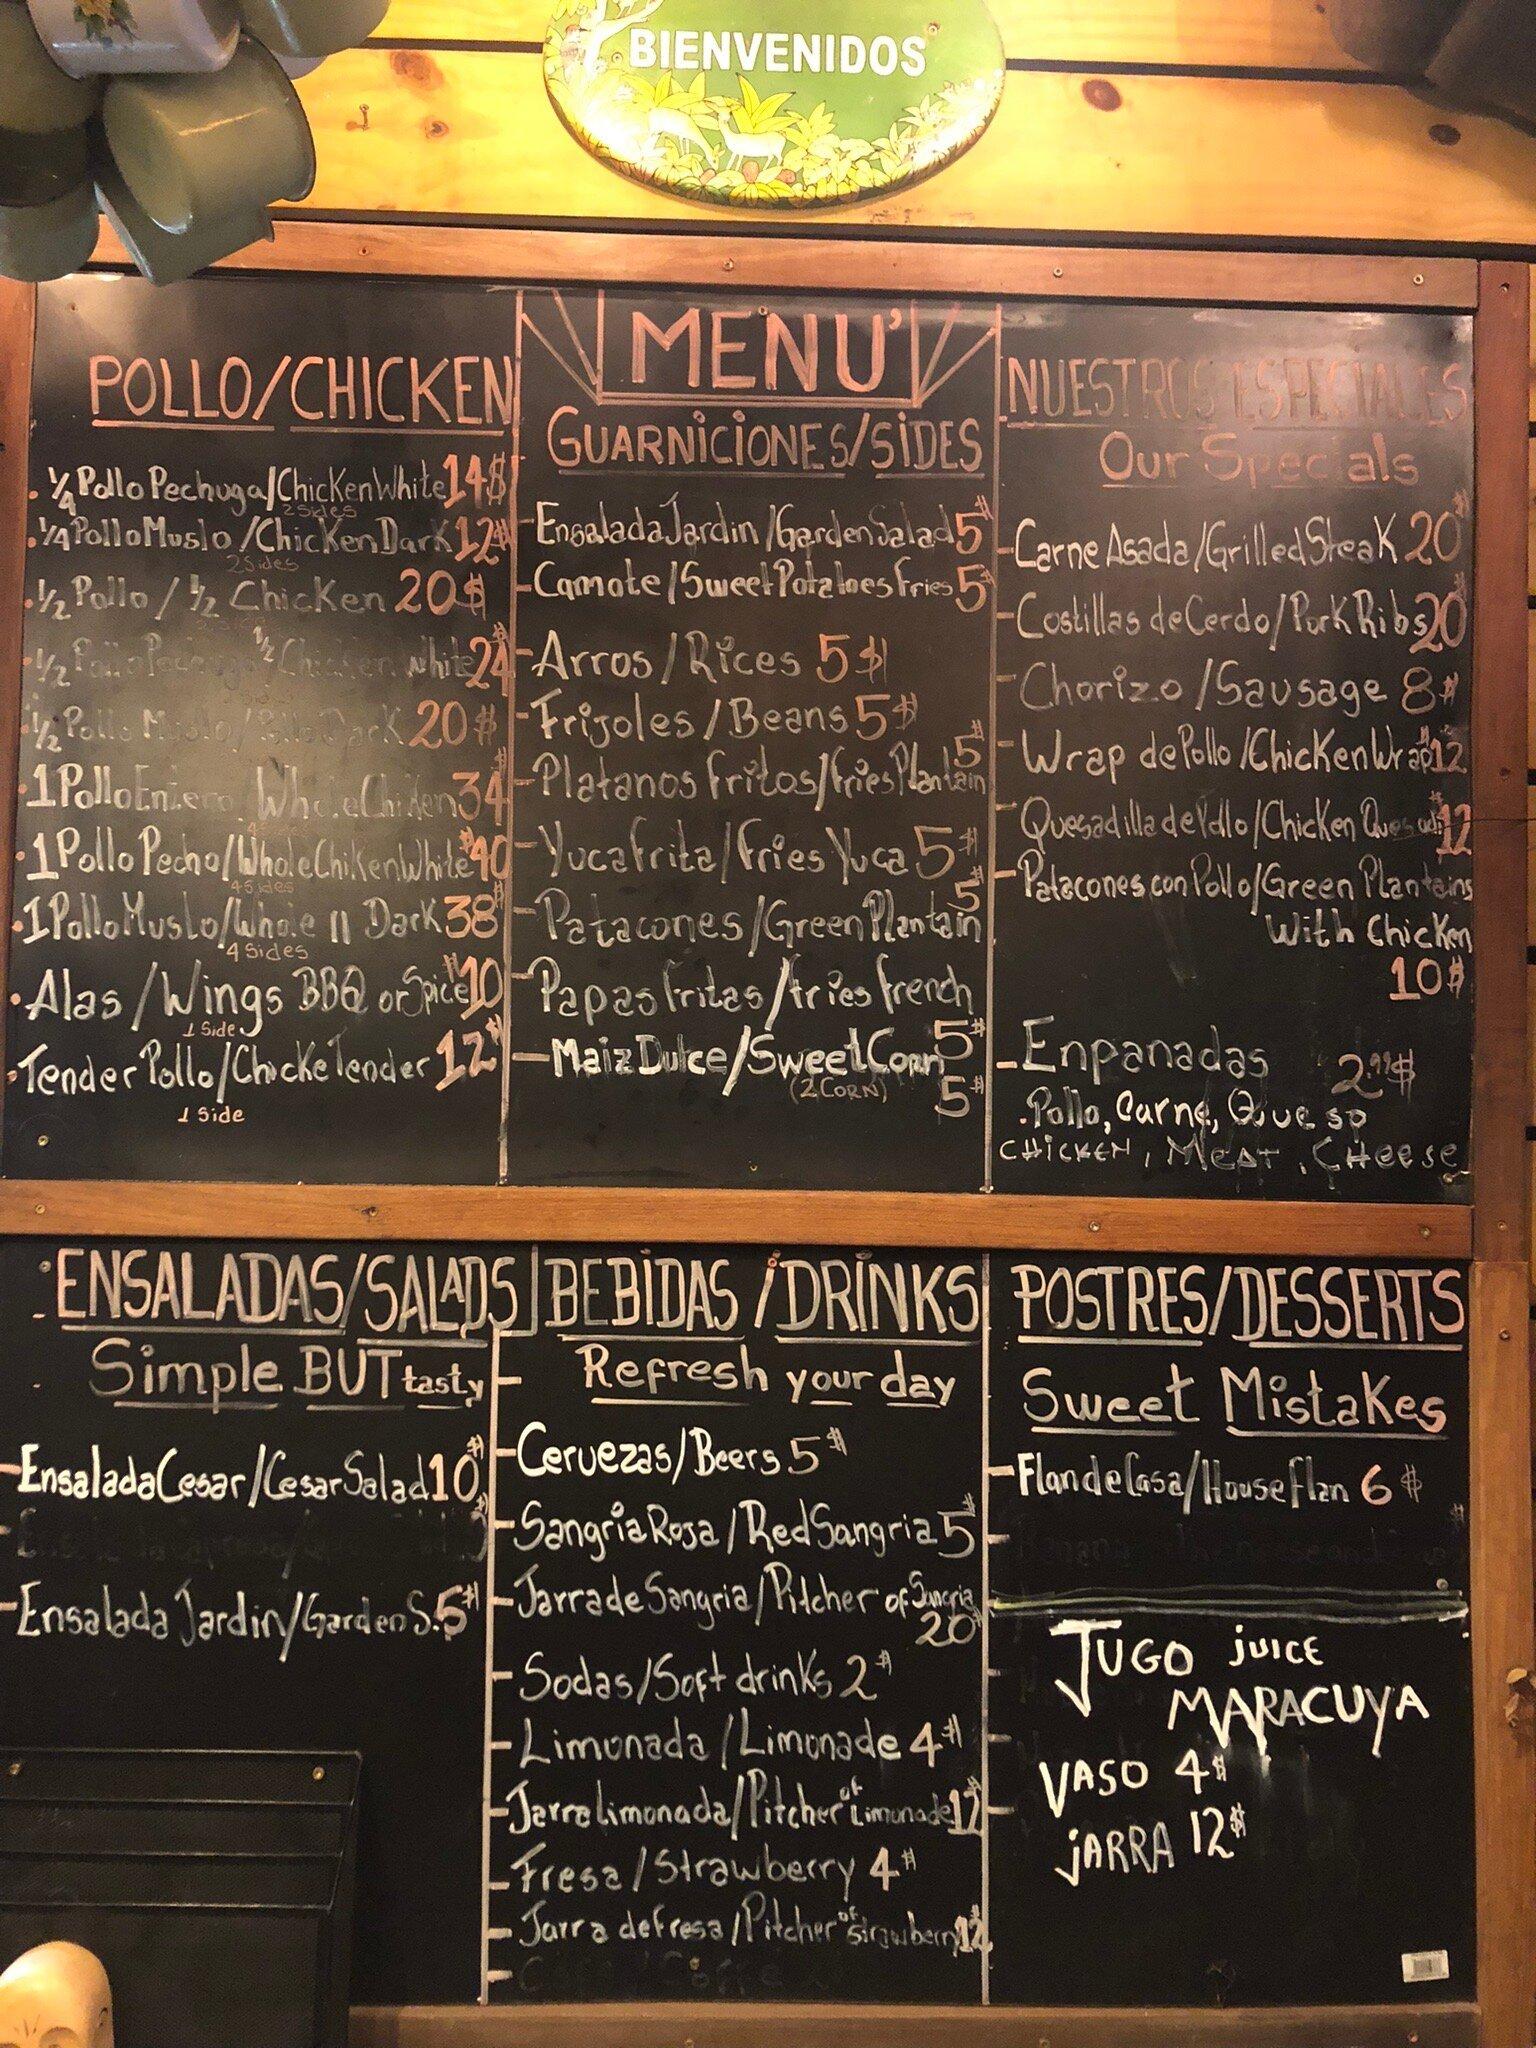 BIENVENIDOS
MENU'
POLLO/CHICKEN
. 1/4 Pollo Pechuga/Chicken White 14$
2 Sides
. 1/4 Pollo Muslo/Chicken Dark 12$
2 Sides
. 1/2 Pollo / 1/2 Chicken 20$
. 1/2 Pollo Pechuga 1/2 Chicken White 24$
. 1/2 Pollo Muslo/Pollo Dark 20$
. 1 Pollo Entero/Whole Chicken 34$
. 1 Pollo Pecho/Whole Chiken White $40
4 Sides
. 1 Pollo Muslo/Whole 11 Dark 38$
4 Sides
. Alas/Wings BBQ or Spice $10
1 Side
. Tender Pollo/Chicke Tender 12$
1 Side
GUARNICIONES/SIDES
Ensalada Jardin/Garden Salad 5$
- Camote/Sweet Potatoes Fries 5$
- Arros/Rices 5$
- Frijoles/Beans 5$
5$
- Platanos Fritos/Fries Plantain
- Yuca Frita/Fries Yuca 5$
5$
- Patacones/Green Plantain
- Papas Fritas/Fries French
5$
- Maiz Dulce/Sweet Corn
(2 CORN) 5$
NUESTROS ESPECIALES
Our Specials
- Carne Asada/Grilled Steak 20$
- Costillas de Cerdo/Pork Ribs 20$
- Chorizo/Sausage 8$
- Wrap de Pollo/Chicken Wrap 12$
- Quesadilla de Pollo/Chicken 12$
- Patacones con Pollo/Green Plantains
With Chicken
10$
- Enpanadas 2.99$
. Pollo, Carne, Queso
CHICKEN, MEAT, CHeese
ENSALADAS/SALADS
Simple BUT tasty
- Ensalada Cesar/Cesar Salad 10$
- Ensalada Jardin/Garden S. 5$
BEBIDAS/DRINKS
Refresh your day
- Ceruezas/Beers 5$
- Sangria Roja/Red Sangria 5$
- Jarra de Sangria/Pitcher of Sangria
20$
- Sodas/Soft drinks 2$
- Limonada/Limonade 4$
- Jarra Limonada/Pitcher of Limonade 12$
- Fresa/Strawberry 4$
- Jarra de Fresa/Pitcher of Strawberry 12$
POSTRES/DESSERTS
Sweet Mistakes
- Flan de Casa/House Flan 6$
JUGO juice
MARACUYA
VASO 4$
jARRA 12$